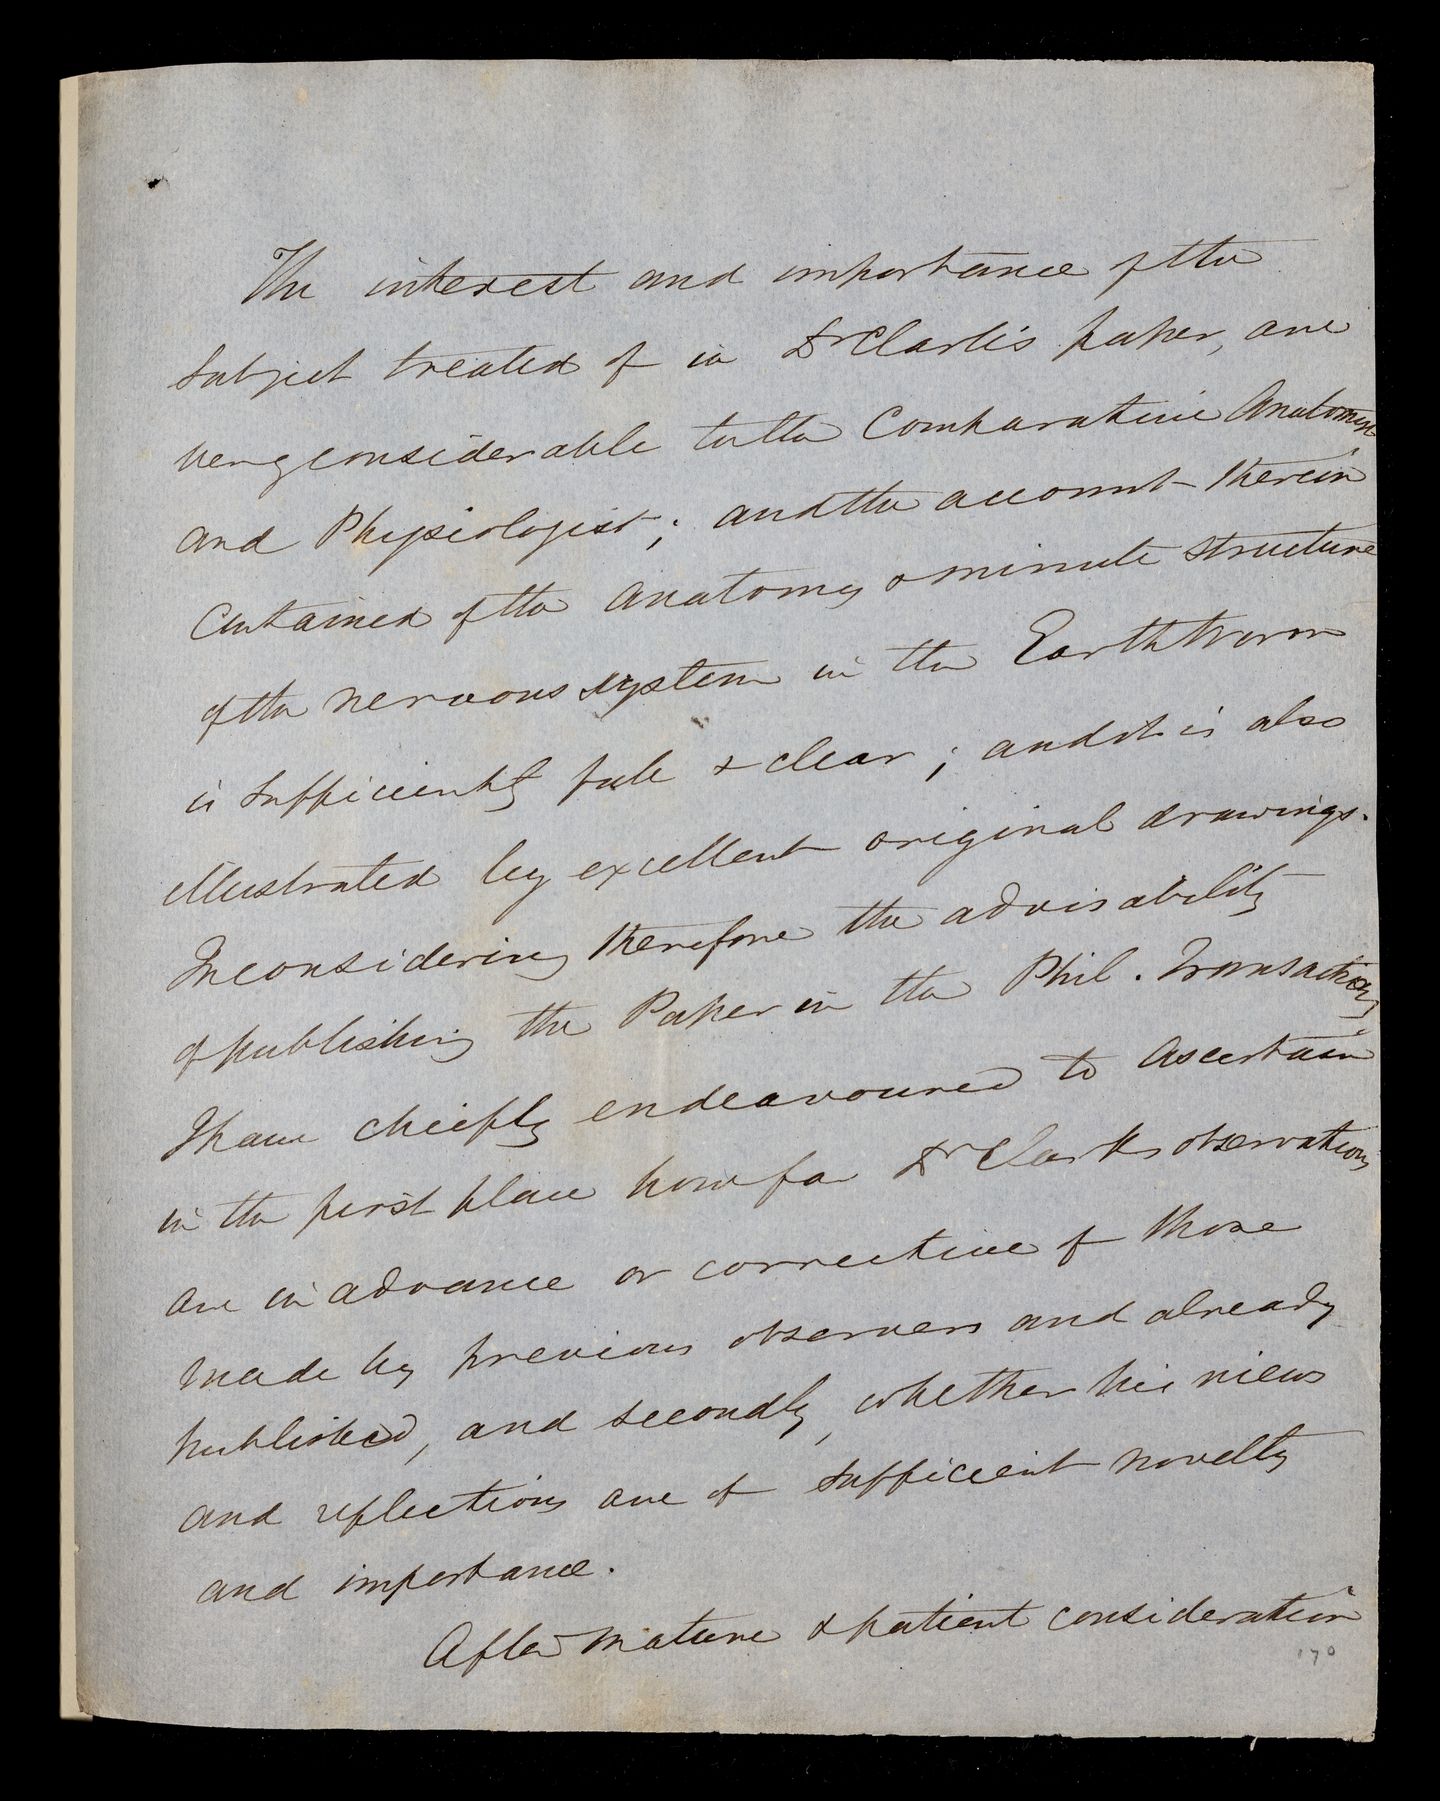 The interest and importance of the
subject treated of in Dr Clark's paper, are
very considerable to the Comparative Anatomist
and Physiologist; and the account therein
contained of the anatomy & minute structure
of the nervous system in the Earthworm
is sufficiently full & clear; and it is also
illustrated by excellent original drawings.
In considering therefore the advisability
of publishing the Paper in the Phil. Transactions
I have chiefly endeavoured to ascertain
in the first place how far Dr Clarks observations
are in advance or corrective of those
made by previous observers and already
published, and secondly, whether his views
and reflections are of sufficient novelty
and importance.
After mature & patient consideration
170